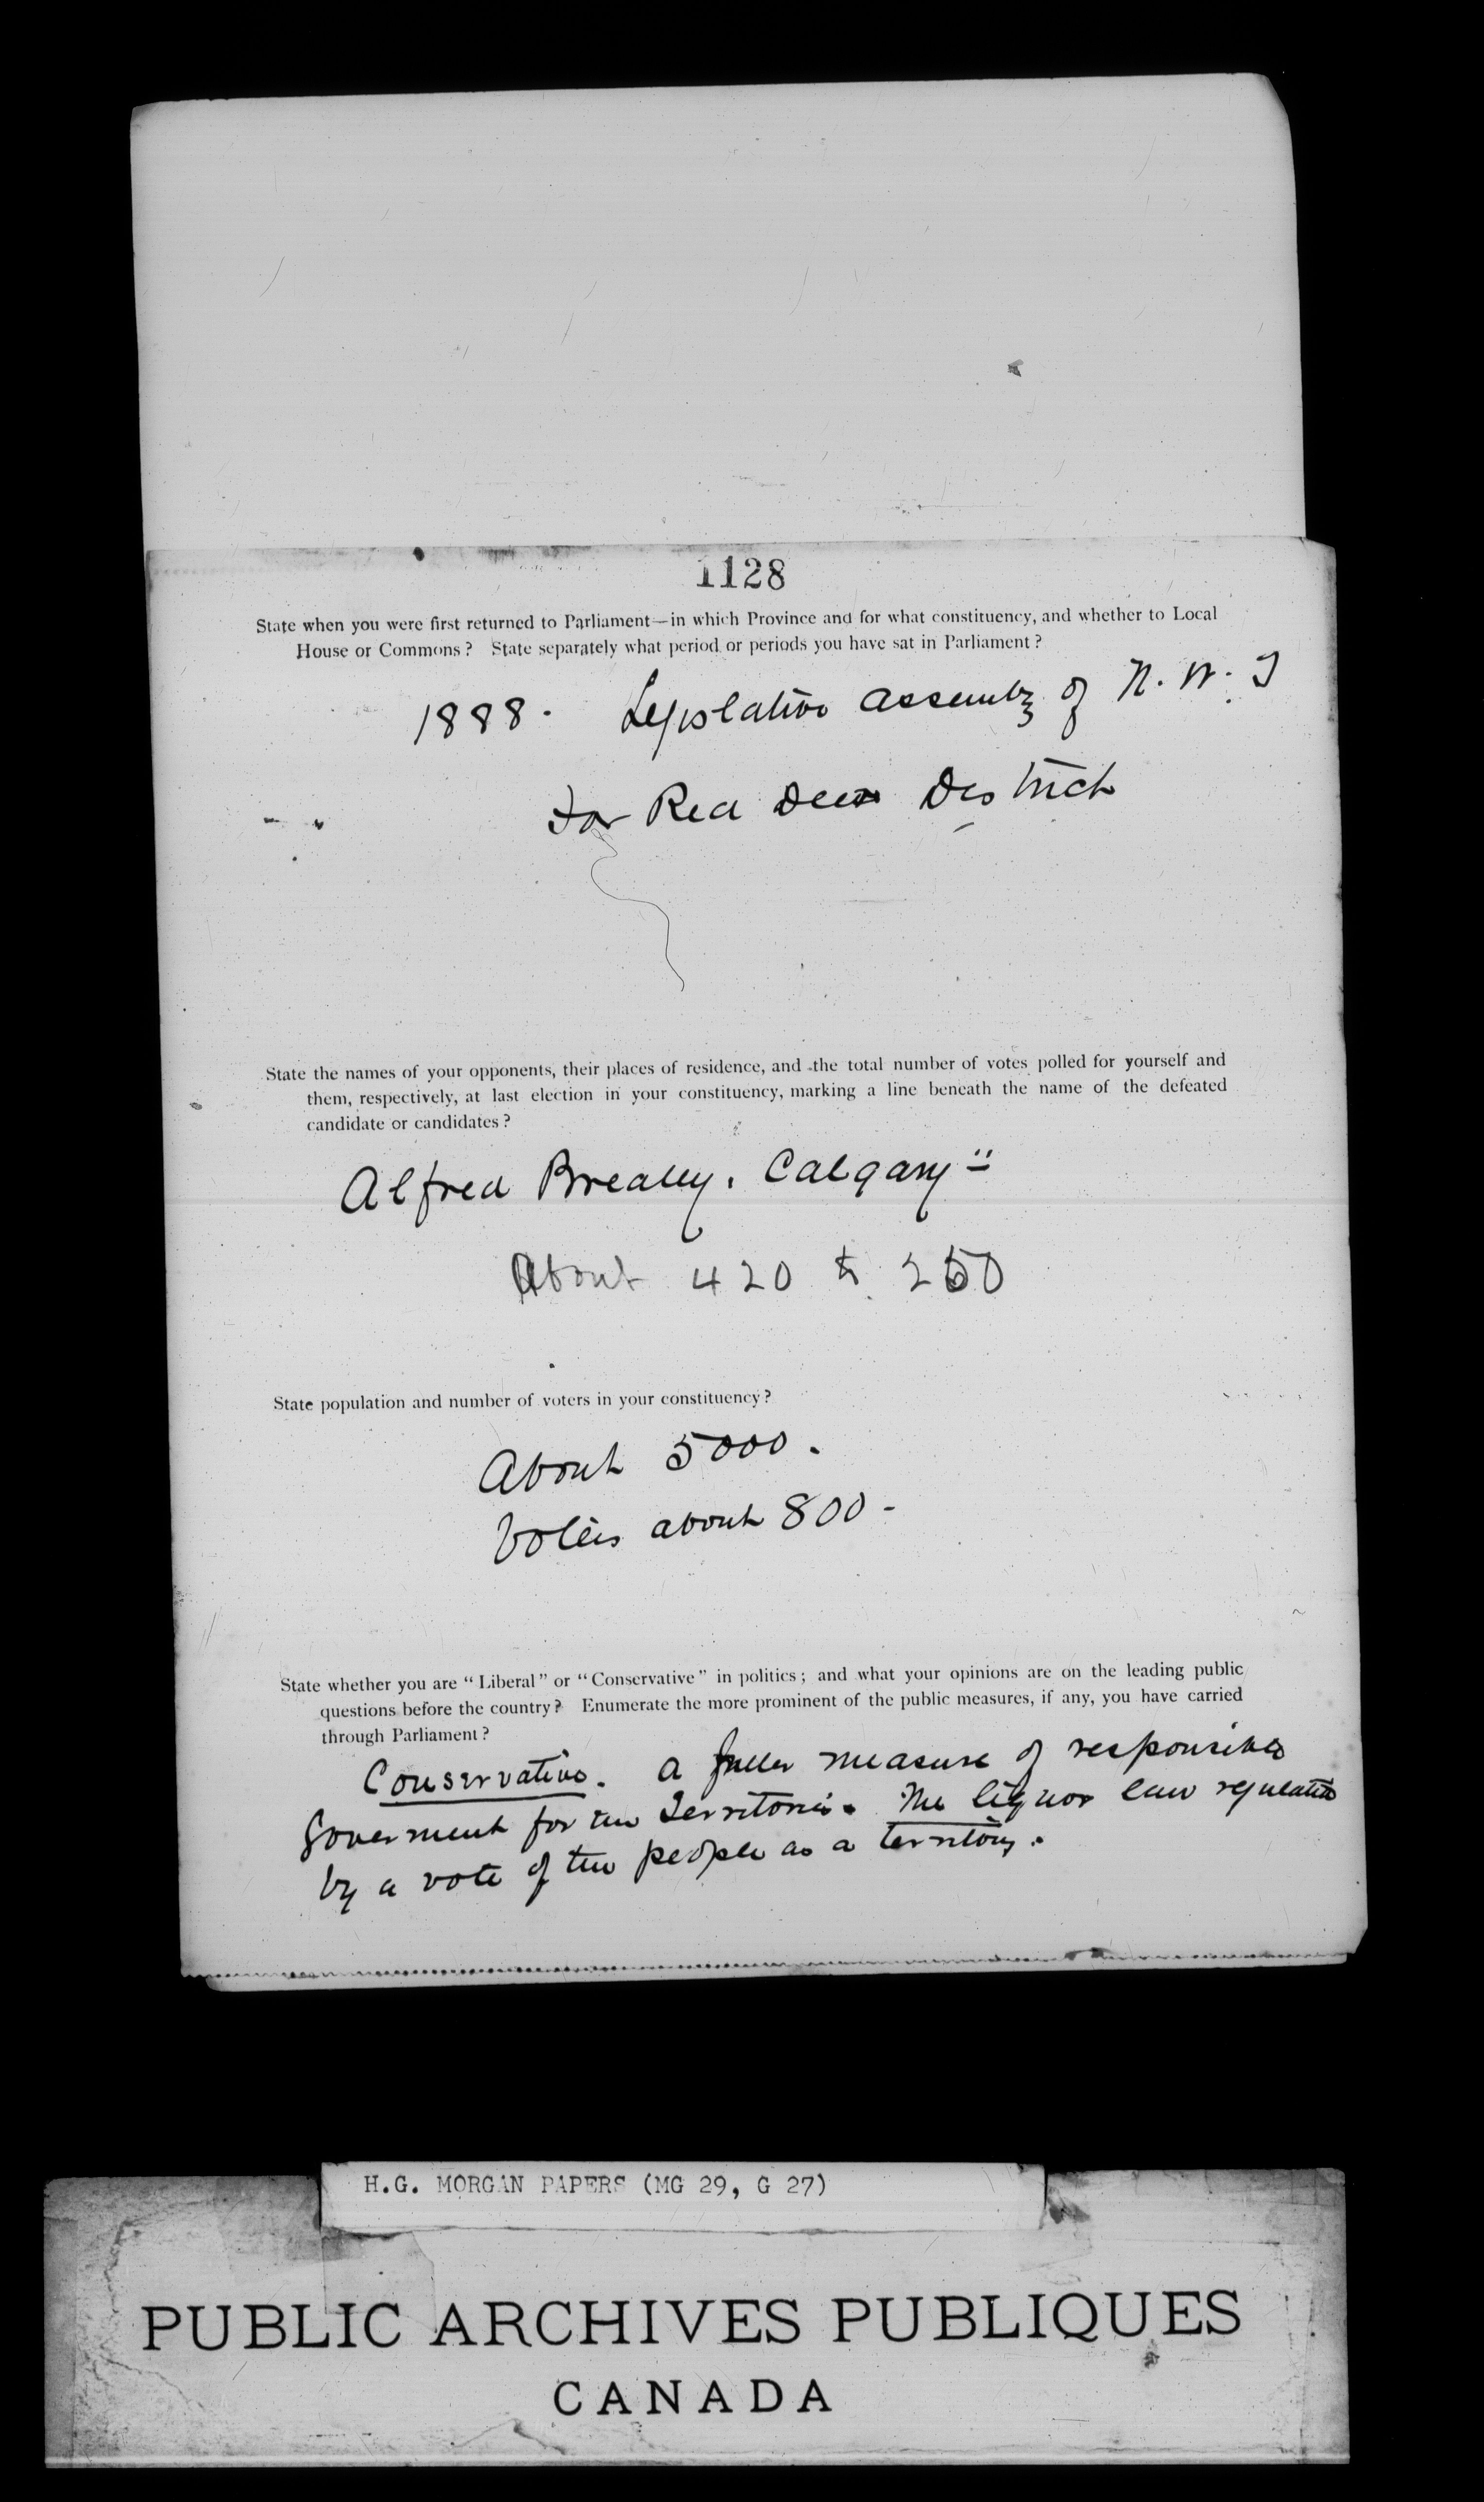 1128
State when you were first returned to Parliament—in which Province and for what constituency, and whether to Local
House or Commons? State separately what period or periods you have sat in Parliament?
1888. Legislative Assembly of N. W. T
For Red Deer District
State the names of your opponents, their places of residence, and the total number of votes polled for yourself and
them, respectively, at last election in your constituency, marking a line beneath the name of the defeated
candidate or candidates?
Alfred Brealey. Calgary
About 420 to 250
State population and number of voters in your constituency?
About 5000.
Voters about 800-
State whether you are "Liberal" or "Conservative" in politics; and what your opinions are on the leading public
questions before the country? Enumerate the more prominent of the public measures, if any, you have carried
through Parliament?
Conservative. A fuller measure of responsible
Goverment for the Territories. The liquor law regulated
by a vote of the people as a territory.
H.G. MORGAN PAPERS (MG 29, G 27)
PUBLIC ARCHIVES PUBLIQUES
CANADA